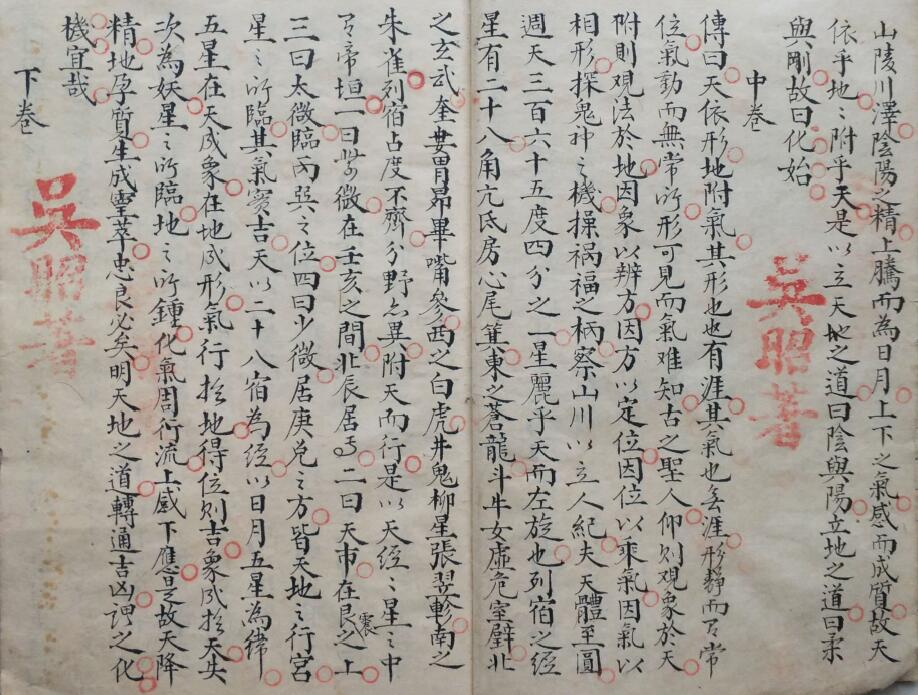 山陵川澤陰陽之精上騰而為日月上下之氣感而成質故天
依乎地〻附乎天是以立天地之道曰陰與陽立地之道曰柔
與剛故曰化始
中卷
傳曰天依形地附氣其形也有涯其氣也無涯形靜而有常
位氣動而無常所形可見而氣难知古之聖人仰则观象於天
附則观法於地因象以辨方因方以定位因位以乘氣因氣以
相形探鬼神之機操祸福之柄察山川以立人紀夫天體至圓
週天三百六十五度四分之一星麗乎天而左旋也列宿之经
星有二十八角亢氐房心尾箕東之蒼龍斗牛女虛危室壁北
之玄武奎婁胃昴畢嘴參西之白虎井鬼柳星張翌軫南之
朱雀列宿占度不齊分野亦異附天而行是以天经〻星之中
有帝垣一曰紫微在壬亥之間北辰居焉二曰天市在艮震之上
三曰太微臨丙巽之位四曰少微居庚兌之方皆天地之行宮
星之所臨其氣寔吉天以二十八宿為经以日月五星為緯
五星在天成象在地成形氣行於地得位则吉象成於天失
次為妖星之所臨地之所鍾化氣周行流上感下應是故天降
精地孕質生成靈萃忠良必矣明天地之道轉通吉凶謂之化
機宜哉
下卷
吳昭著
吳昭著